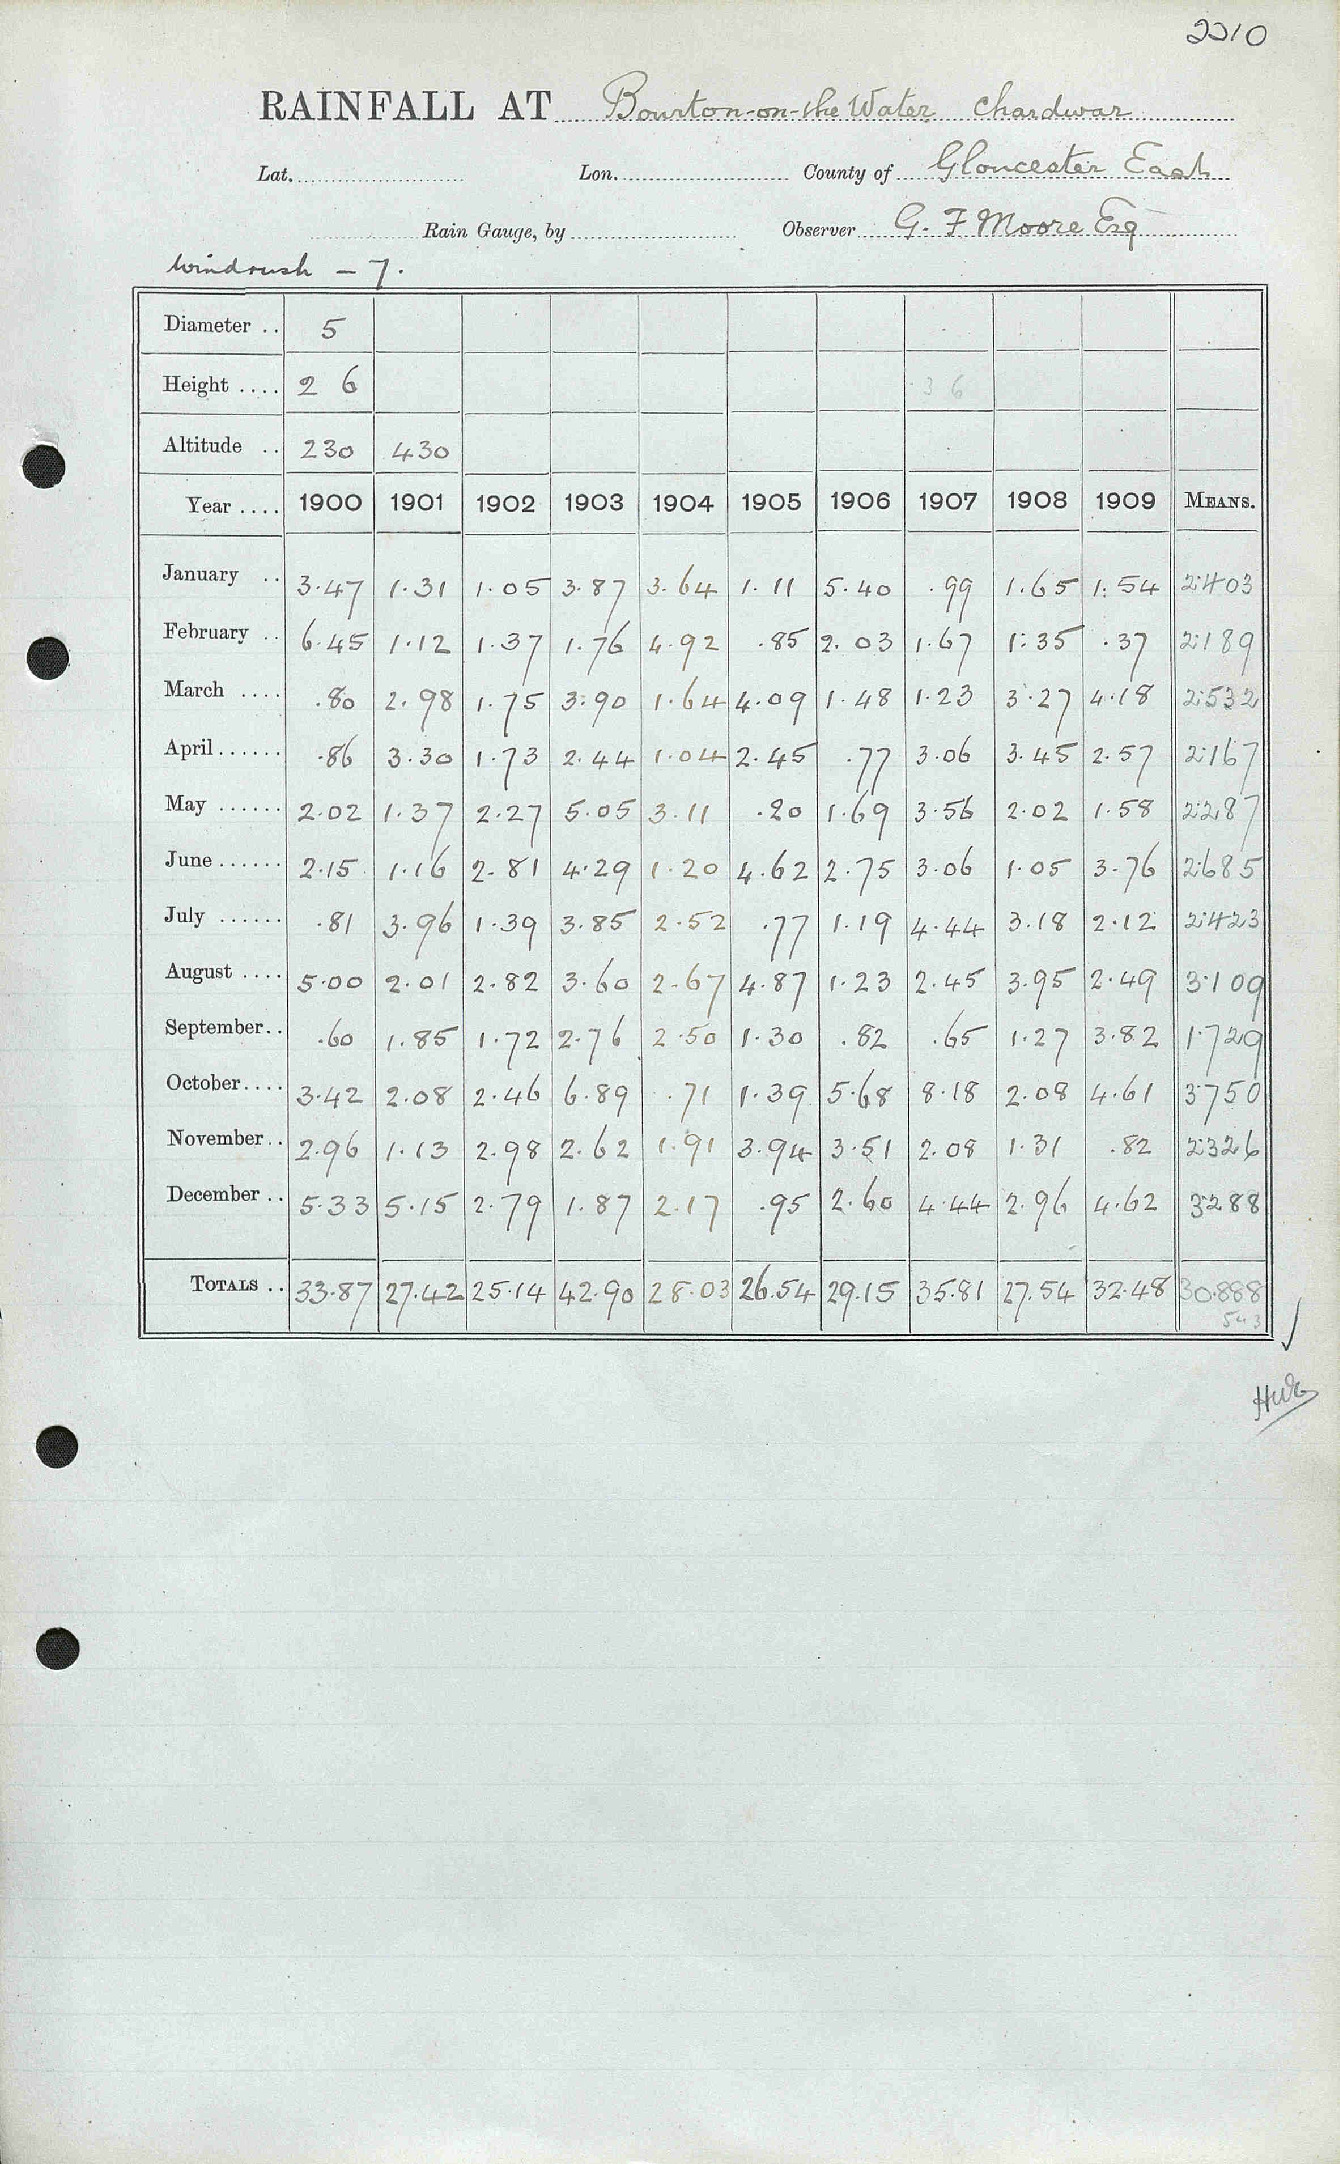 2210
RAINFALL AT Bourton-on-the Water Chardwar
Lat. Lon. County of Gloucester East
Rain Gauge, by Observer G. F Moore Esq
Windrush - 7.
Diameter .. 5
Height .... 2 6 3 6
Altitude .. 230 430
Year .... 1900 1901 1902 1903 1904 1905 1906 1907 1908 1909 MEANS.
January .. 3.47 1.31 1.05 3.87 3.64 1.11 5.40 .99 1.65 1.54 2.403
February .. 6.45 1.12 1.37 1.76 4.92 .85 2.03 1.67 1.35 .37 2.189
March .... .80 2.98 1.75 3.90 1.64 4.09 1.48 1.23 3.27 4.18 2.532
April ...... .86 3.30 1.73 2.44 1.04 2.45 .77 3.06 3.45 2.57 2.167
May ...... 2.02 1.37 2.27 5.05 3.11 .20 1.69 3.56 2.02 1.58 2.287
June ...... 2.15 1.16 2.81 4.29 1.20 4.62 2.75 3.06 1.05 3.76 2.685
July ...... .81 3.96 1.39 3.85 2.52 .77 1.19 4.44 3.18 2.12 2.423
August .... 5.00 2.01 2.82 3.60 2.67 4.87 1.23 2.45 3.95 2.49 3.109
September .. .60 1.85 1.72 2.76 2.50 1.30 .82 .65 1.27 3.82 1.729
October .... 3.42 2.08 2.46 6.89 .71 1.39 5.68 8.18 2.08 4.61 3750
November .. 2.96 1.13 2.98 2.62 1.91 3.94 3.51 2.08 1.31 .82 2326
December .. 5.33 5.15 2.79 1.87 2.17 .95 2.60 4.44 2.96 4.62 3288
TOTALS .. 33.87 27.42 25.14 42.90 28.03 26.54 29.15 35.81 27.54 32.48 30.888
543